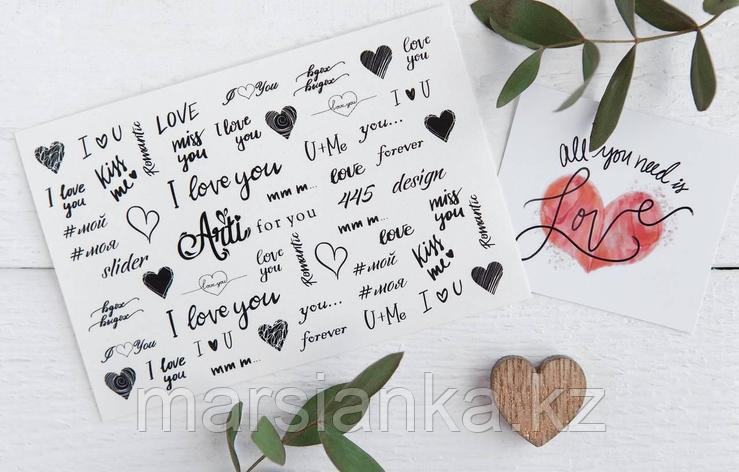 I ♡ You
вдох
выдох
love
you
I ♥ U
LOVE
miss
you
I love
you
love you
I ♥ U
Kiss
me
Romantic
U+Me
you...
forever
I love
you
I love you
mm m...
love
445
design
#мой
#моя
slider
Arti for you
mm m...
miss
you
Romantic
love
you
Romantic
love
#мой
#моя
Kiss
me
love you
вдох
выдох
I love you
you...
forever
U+Me
I ♥ U
I ♡ You
I love
you
I ♥ U
mm m...
all you need is
Love
marsianka.kz